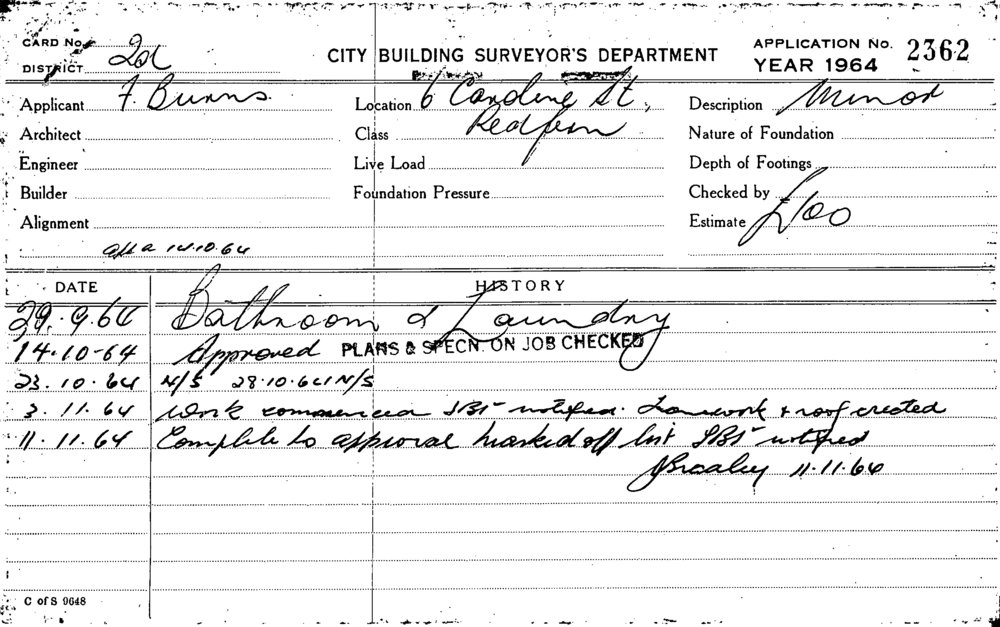 CARD No.
DISTRICT
CITY BUILDING SURVEYOR'S DEPARTMENT
APPLICATION No. 2362
YEAR 1964
Applicant F. Burns.
Location 6 Caroline St,
Redfern
Description Minor
Architect
Class
Nature of Foundation
Engineer
Live Load
Depth of Footings
Builder
Foundation Pressure
Checked by
Alignment
Estimate £100
14.10.64
DATE HISTORY
29.9.64 Bathroom & Laundry
14.10-64 Approved PLANS & SPECN. ON JOB CHECKED
23.10.64 N/S 28.10.64 N/S
3.11.64 work commenced notified. & roof erected
11.11.64 Complete to approval marked off list notified
11.11.64
C of S 9648